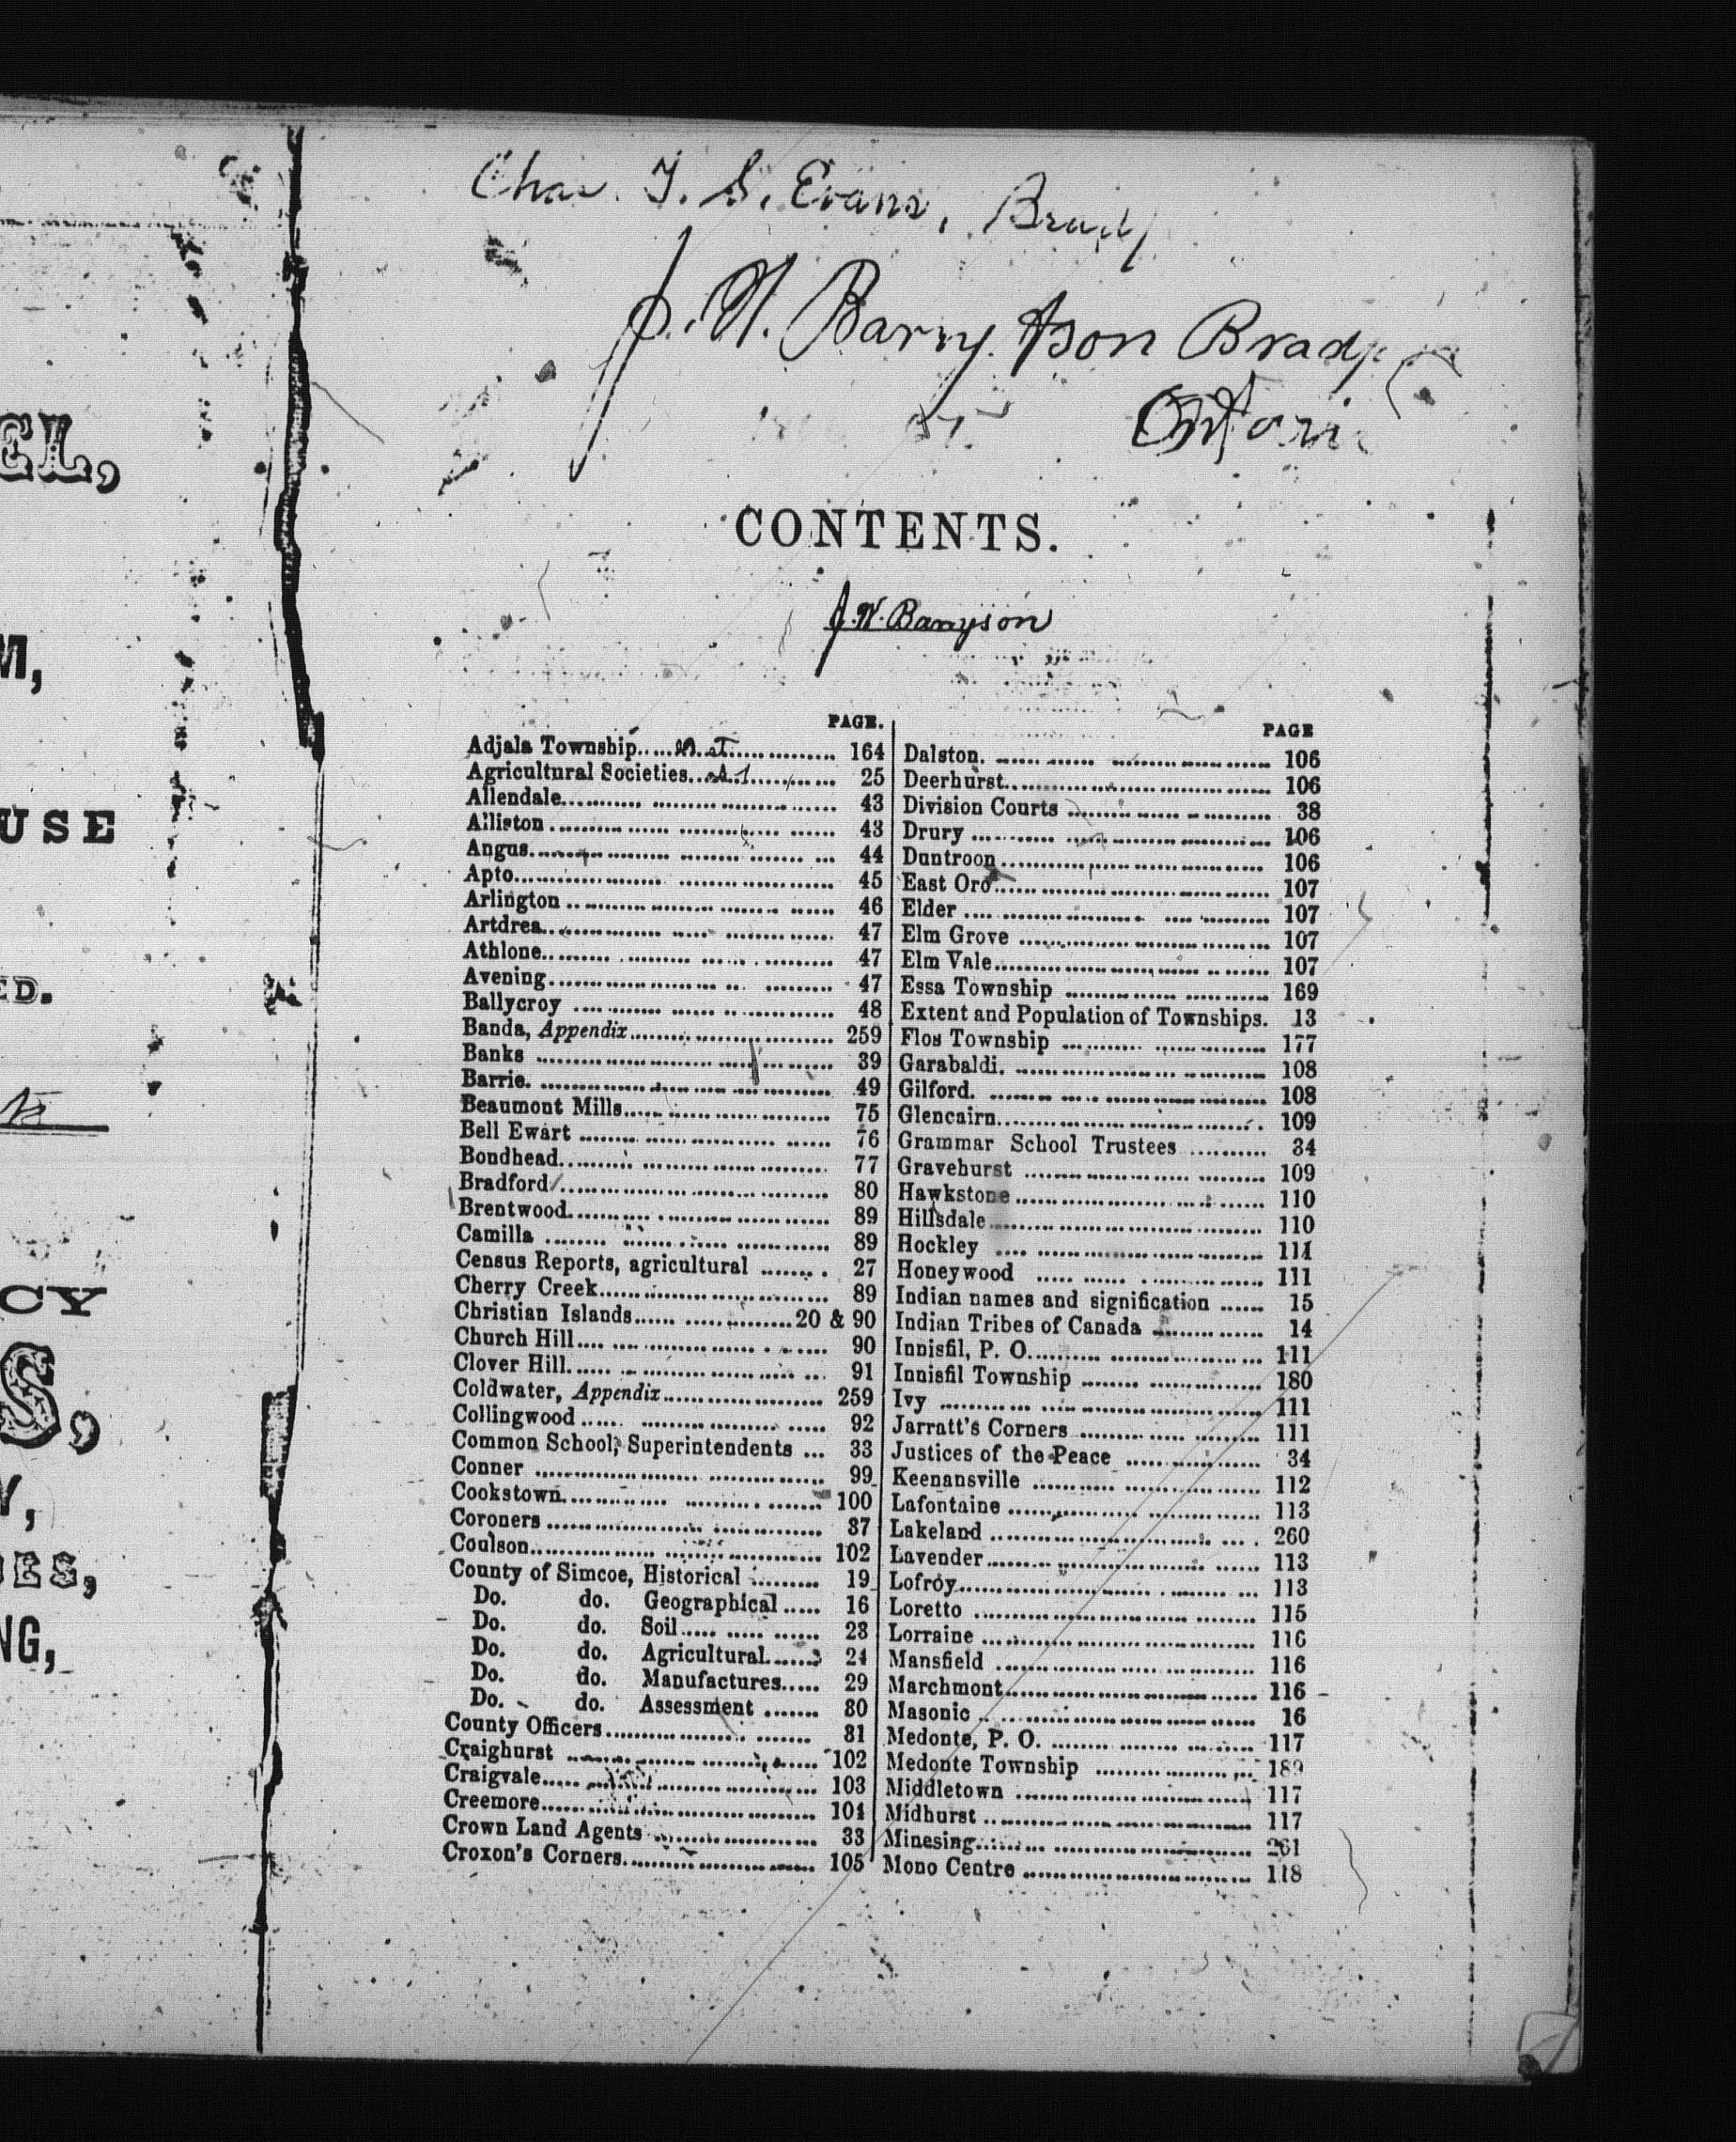 CL,
M,
USE
ED.
CY
S,
Y,
NG,
Chas. T. S. Evans,
J. W. Barry
CONTENTS.
J. W. Barryson
PAGE.
Adjala Township 164
Agricultural Societies 25
Allendale 43
Alliston 43
Angus 44
Apto 45
Arlington 46
Artdrea 47
Athlone 47
Avening 47
Ballycroy 48
Banda, Appendix 259
Banks 39
Barrie. 49
Beaumont Mills 75
Bell Ewart 76
Bondhead 77
Bradford 80
Brentwood 89
Camilla 89
Census Reports, agricultural 27
Cherry Creek 89
Christian Islands 20 & 90
Church Hill 90
Clover Hill 91
Coldwater, Appendix 259
Collingwood 92
Common School, Superintendents 33
Conner 99
Cookstown 100
Coroners 37
Coulson 102
County of Simcoe, Historical 19
Do. do. Geographical 16
Do. do. Soil 23
Do. do. Agricultural 24
Do. do. Manufactures 29
Do. do. Assessment 30
County Officers 31
Craighurst 102
Craigvale 103
Creemore 104
Crown Land Agents 33
Croxon's Corners 105
PAGE
Dalston. 106
Deerhurst 106
Division Courts 38
Drury 106
Duntroon 106
East Oro 107
Elder 107
Elm Grove 107
Elm Vale 107
Essa Township 169
Extent and Population of Townships. 13
Flos Township 177
Garabaldi. 108
Gilford. 108
Glencairn 109
Grammar School Trustees 34
Gravehurst 109
Hawkstone 110
Hillsdale 110
Hockley 111
Honeywood 111
Indian names and signification 15
Indian Tribes of Canada 14
Innisfil, P. O. 111
Innisfil Township 180
Ivy 111
Jarratt's Corners 111
Justices of the Peace 34
Keenansville 112
Lafontaine 113
Lakeland 260
Lavender 113
Lofroy 113
Loretto 115
Lorraine 116
Mansfield 116
Marchmont 116
Masonic 16
Medonte, P. O. 117
Medonte Township 189
Middletown 117
Midhurst 117
Minesing 261
Mono Centre 118